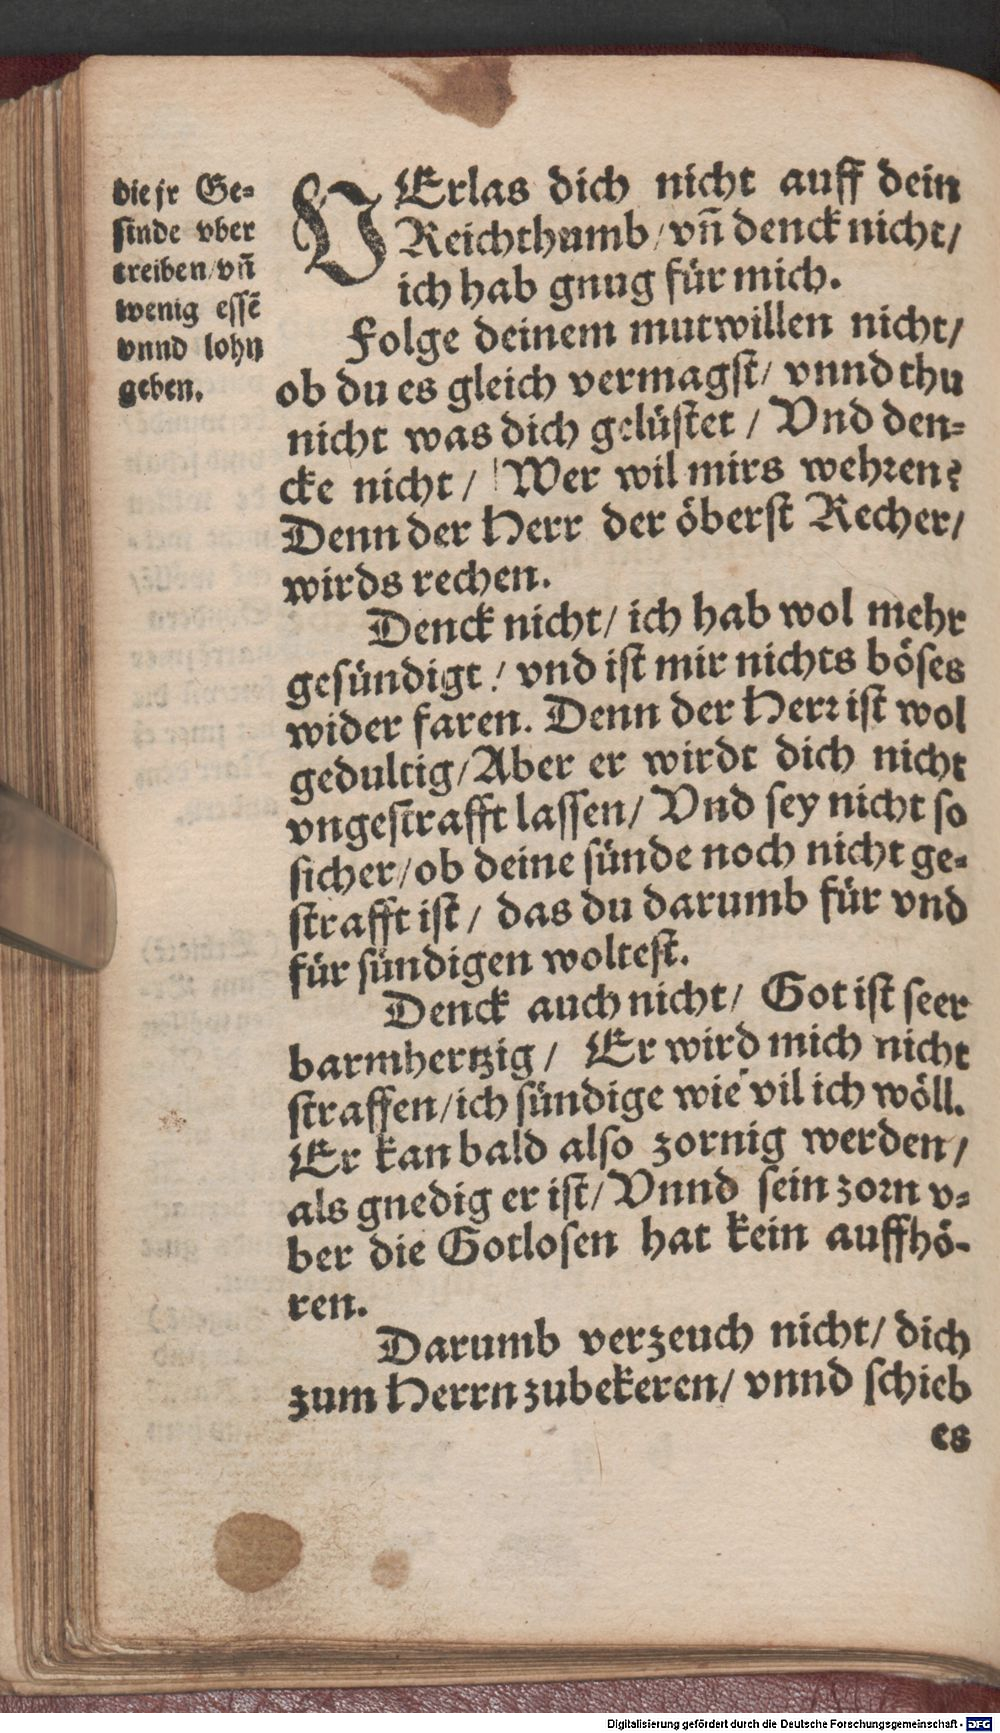 die jr Ge-
sinde vber
treiben/vñ
wenig essẽ
vnnd lohn
geben.
VErlas dich nicht auff dein
Reichthumb/vñ denck nicht/
ich hab gnug für mich.
Folge deinem mutwillen nicht/
ob du es gleich vermagst/ vnnd thu
nicht was dich gelüstet / Vnd den-
cke nicht / Wer wil mirs wehren?
Denn der Herr der öberst Recher/
wirds rechen.
Denck nicht/ ich hab wol mehr
gesündigt / vnd ist mir nichts böses
wider faren. Denn der Herr ist wol
gedultig/Aber er wirdt dich nicht
vngestrafft lassen/ Vnd sey nicht so
sicher/ob deine sünde noch nicht ge-
strafft ist / das du darumb für vnd
für sündigen woltest.
Denck auch nicht/ Got ist seer
barmhertzig / Er wird mich nicht
straffen/ich sündige wie vil ich wöll.
Er kan bald also zornig werden/
als gnedig er ist/ Vnnd sein zorn v-
ber die Gotlosen hat kein auffhö-
ren.
Darumb verzeuch nicht/ dich
zum Herrn zubekeren/ vnnd schieb
es
Digitalisierung gefördert durch die Deutsche Forschungsgemeinschaft - DFG